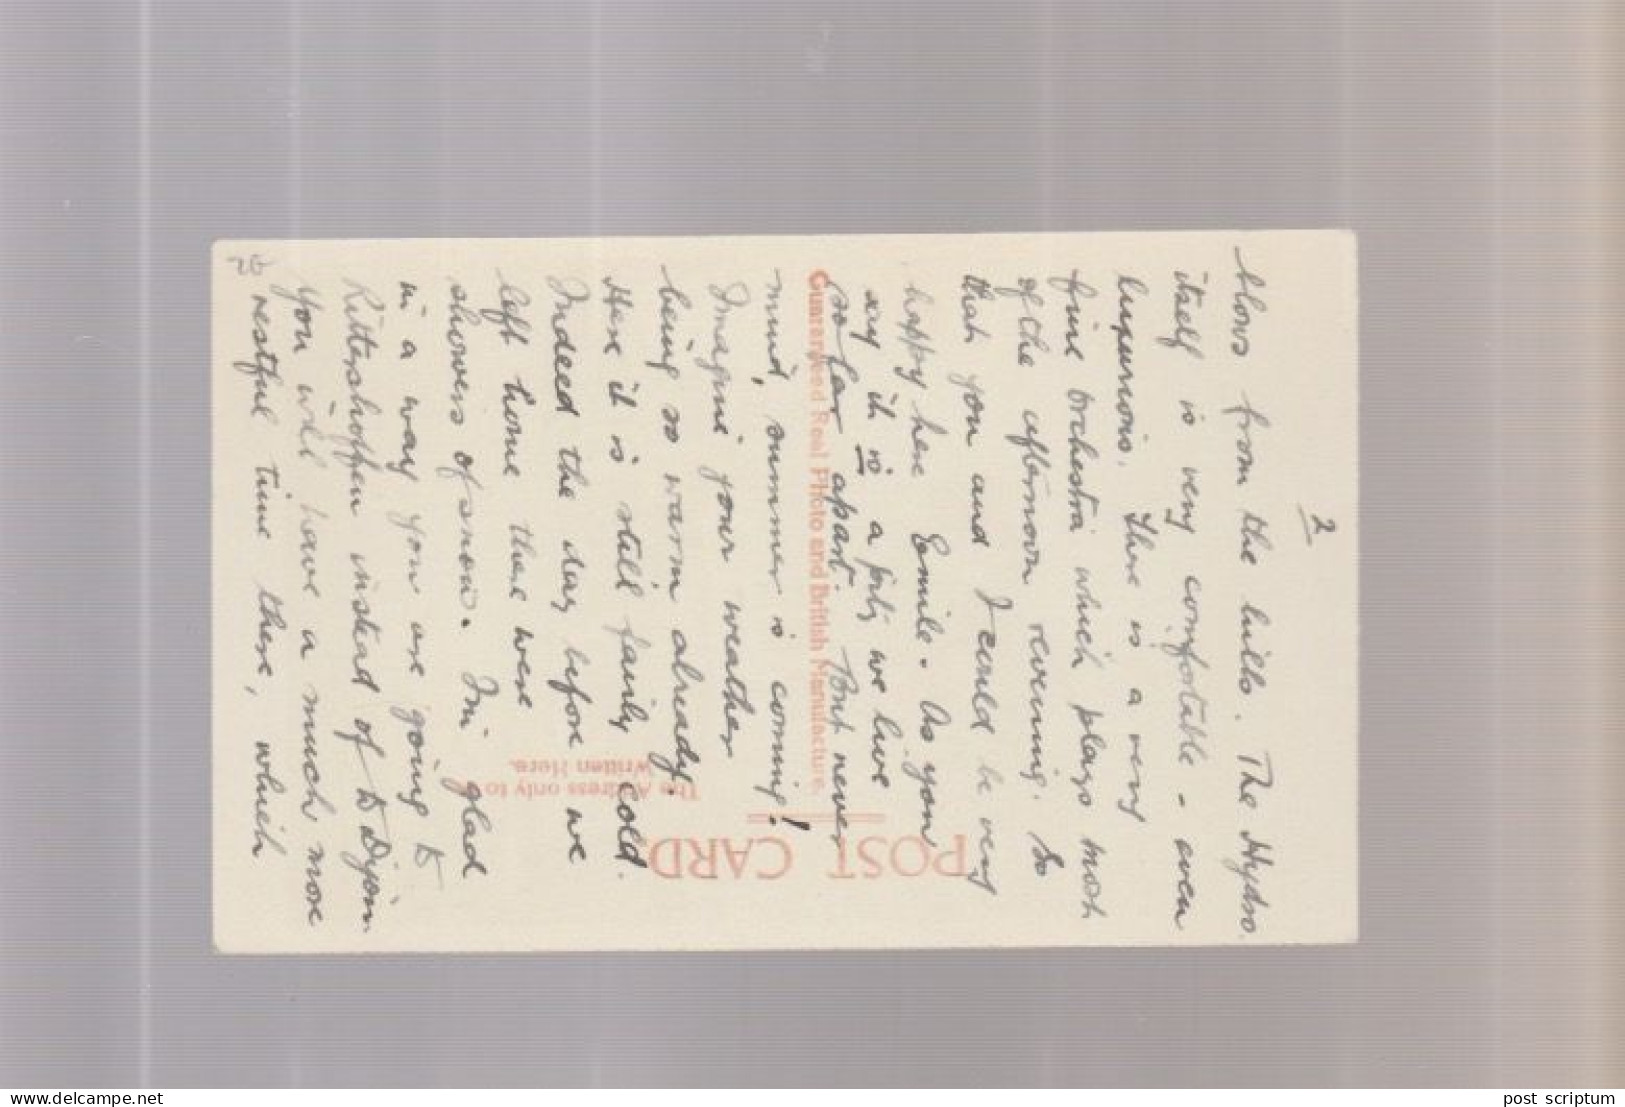 2
blows from the hills. The Hydro
itself is very comfortable - even
luxurious. There is a very
fine orchestra which plays most
of the afternoon & evening. So
that you and I could be very
happy here Emile. As you
say it is a pity we live
so far apart. But never
mind, summer is coming!
Imagine your weather
being so warm already.
Here it is still fairly cold.
Indeed the day before we
left home there were
showers of snow. I'm glad
in a way you are going to
Rittershoffen instead of to Dijon
You will have a much more
restful time there, which
POST CARD
The Address only to be
Written Here.
Guaranteed Real Photo and British Manufacture.
delcampe.net
post scriptum